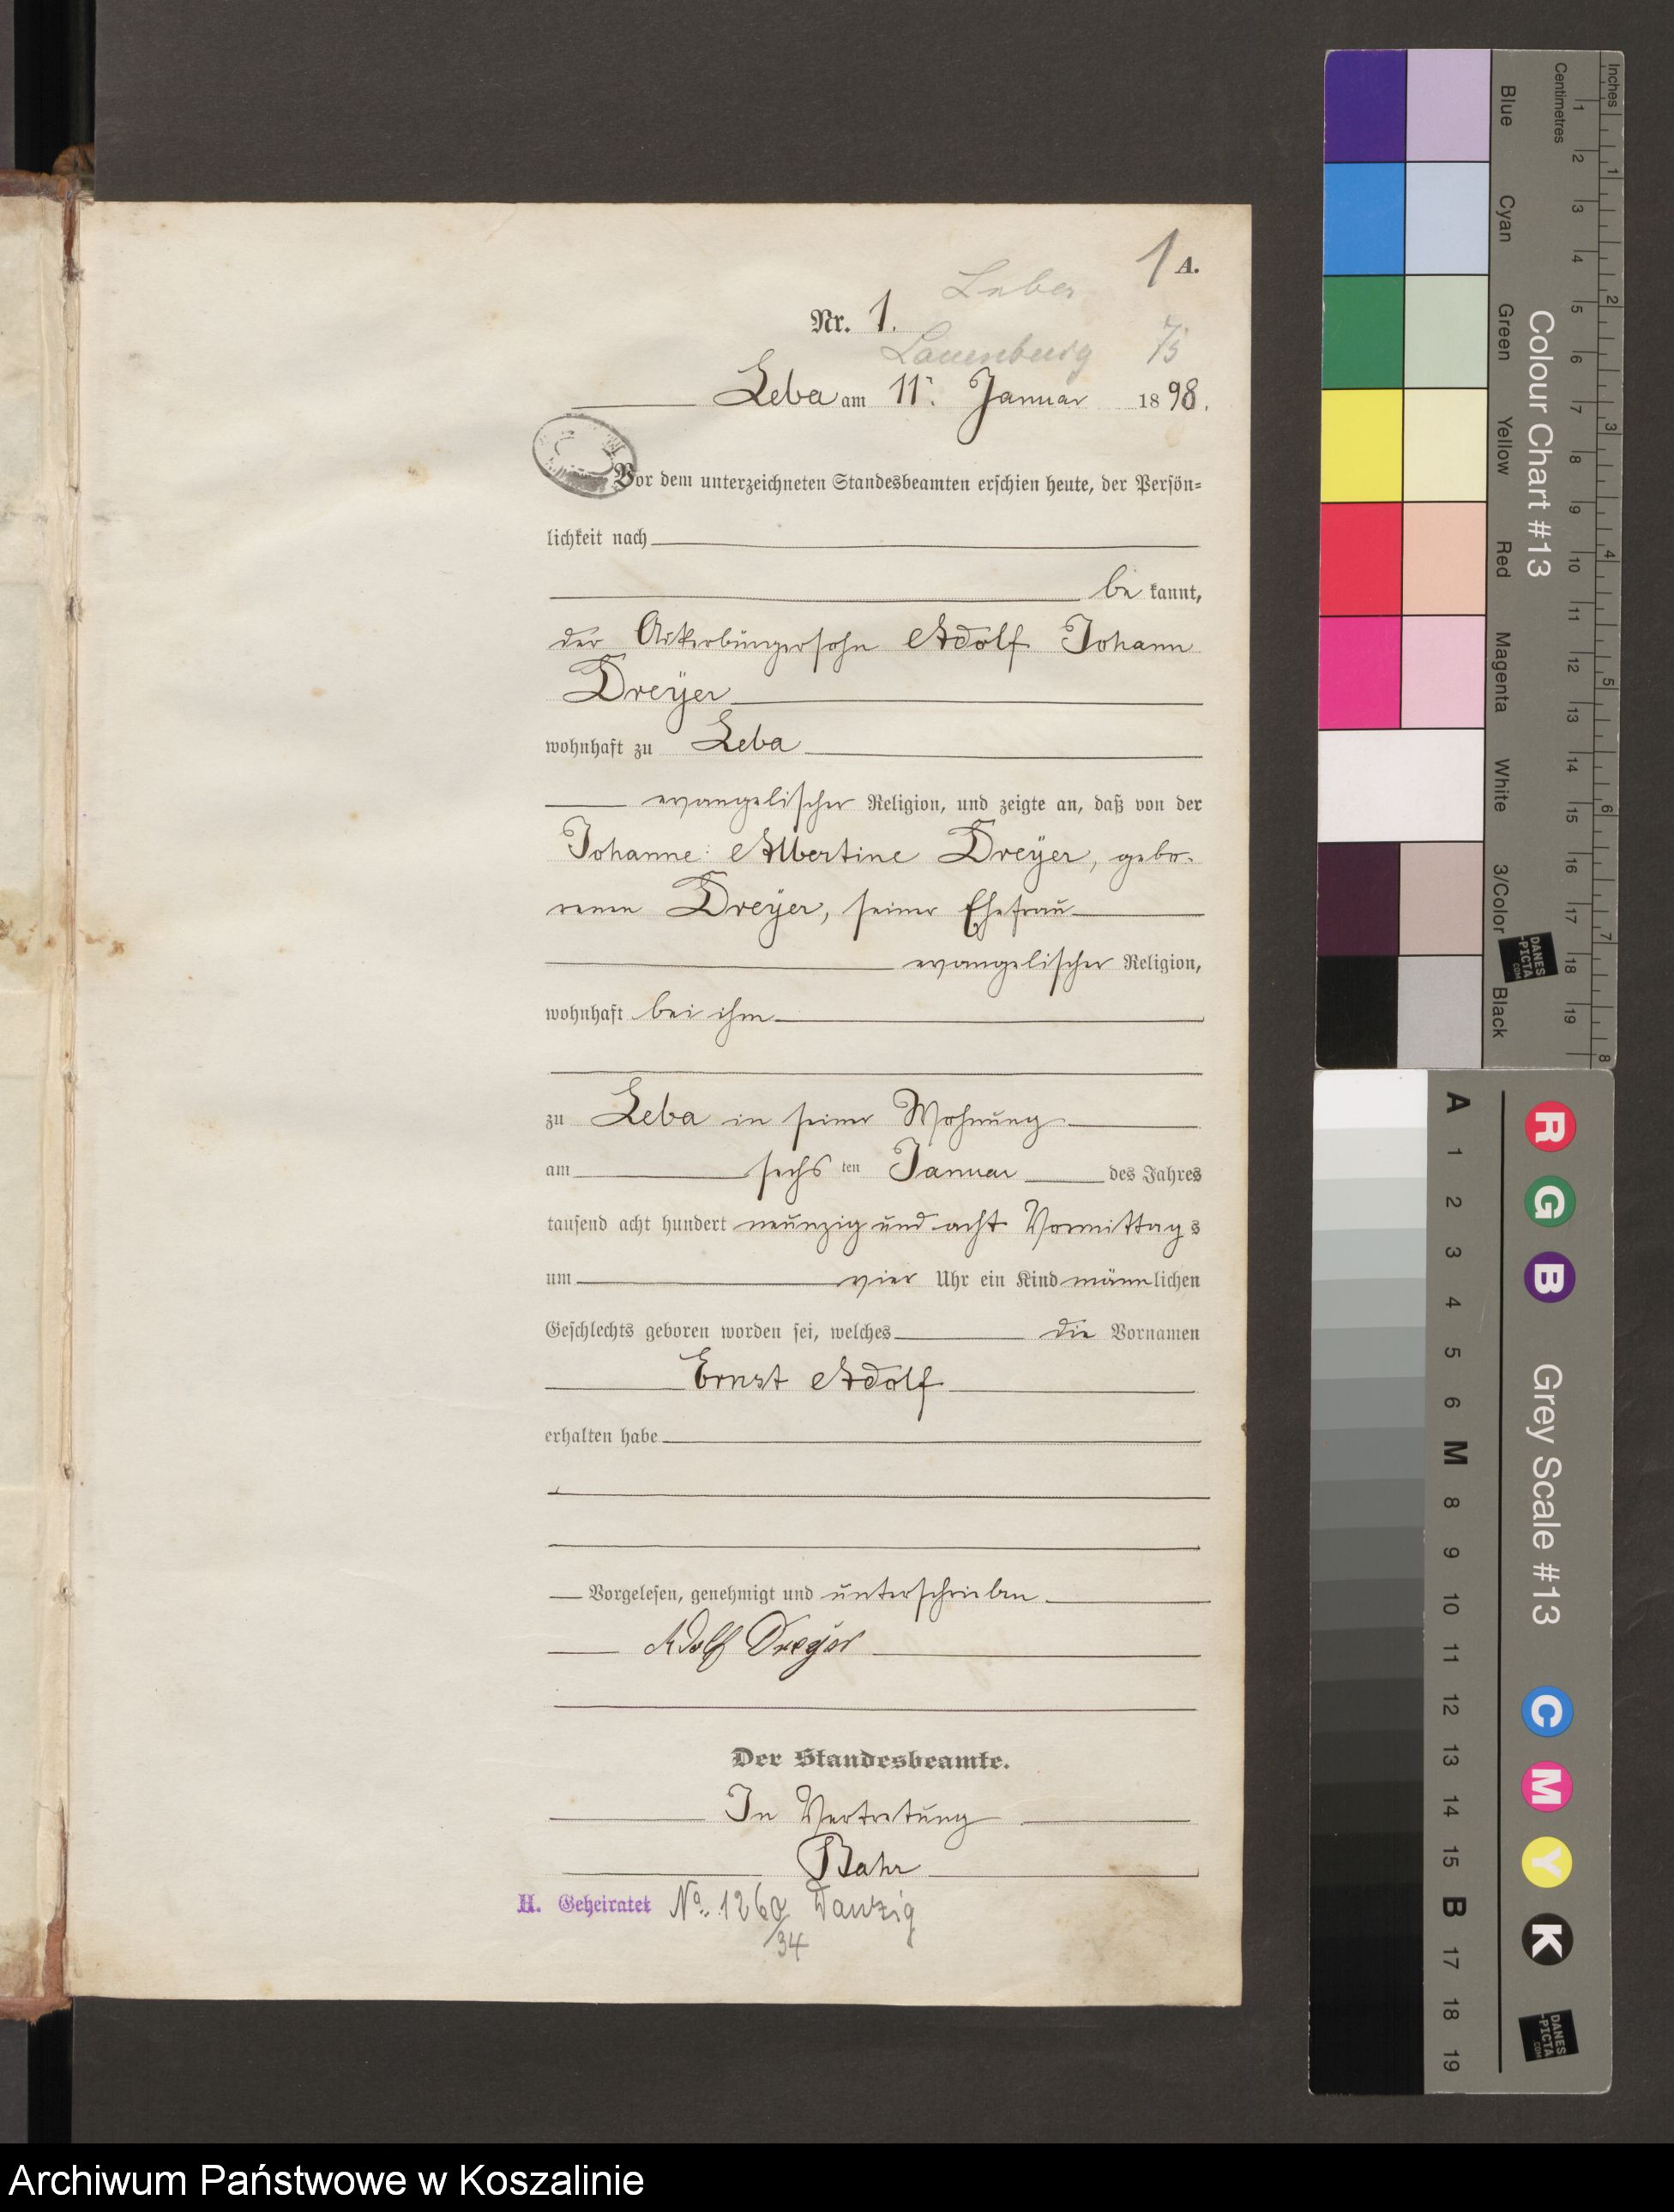 1 A.
Leba
Nr. 1.
Lauenburg 75
Leba am 11. Januar 1898.
Vor dem unterzeichneten Standesbeamten erschien heute, der Persön=
lichkeit nach
be kannt,
der Ackerbürgersohn Adolf Johann
Dreÿer
wohnhaft zu Leba
evangelischer Religion, und zeigte an, daß von der
Johanne Albertine Dreÿer, gebo-
renen Dreÿer, seiner Ehefrau
evangelischer Religion,
wohnhaft bei ihm
zu Leba in seiner Wohnung
am sechs ten Januar des Jahres
tausend acht hundert neunzig und acht Vormittag s
um vier Uhr ein Kind männlichen
Geschlechts geboren worden sei, welches die Vornamen
Ernst Adolf
erhalten habe
Vorgelesen, genehmigt und unterschrieben
Adolf Dreÿer
Der Standesbeamte.
In Vertretung
Bahr
H. Geheiratet No. 1260/34 Danzig
Inches
Centimetres
1 2 3 4 5 6 7 8
1 2 3 4 5 6 7 8 9 10 11 12 13 14 15 16 17 18 19
Blue Cyan Green Yellow Red Magenta White 3/Color Black
Colour Chart #13
DANES
-PICTA
.COM
A 1 2 3 4 5 6 M 8 9 10 11 12 13 14 15 B 17 18 19
R G B
Grey Scale #13
C M Y K
DANES
-PICTA
.COM
Archiwum Państwowe w Koszalinie